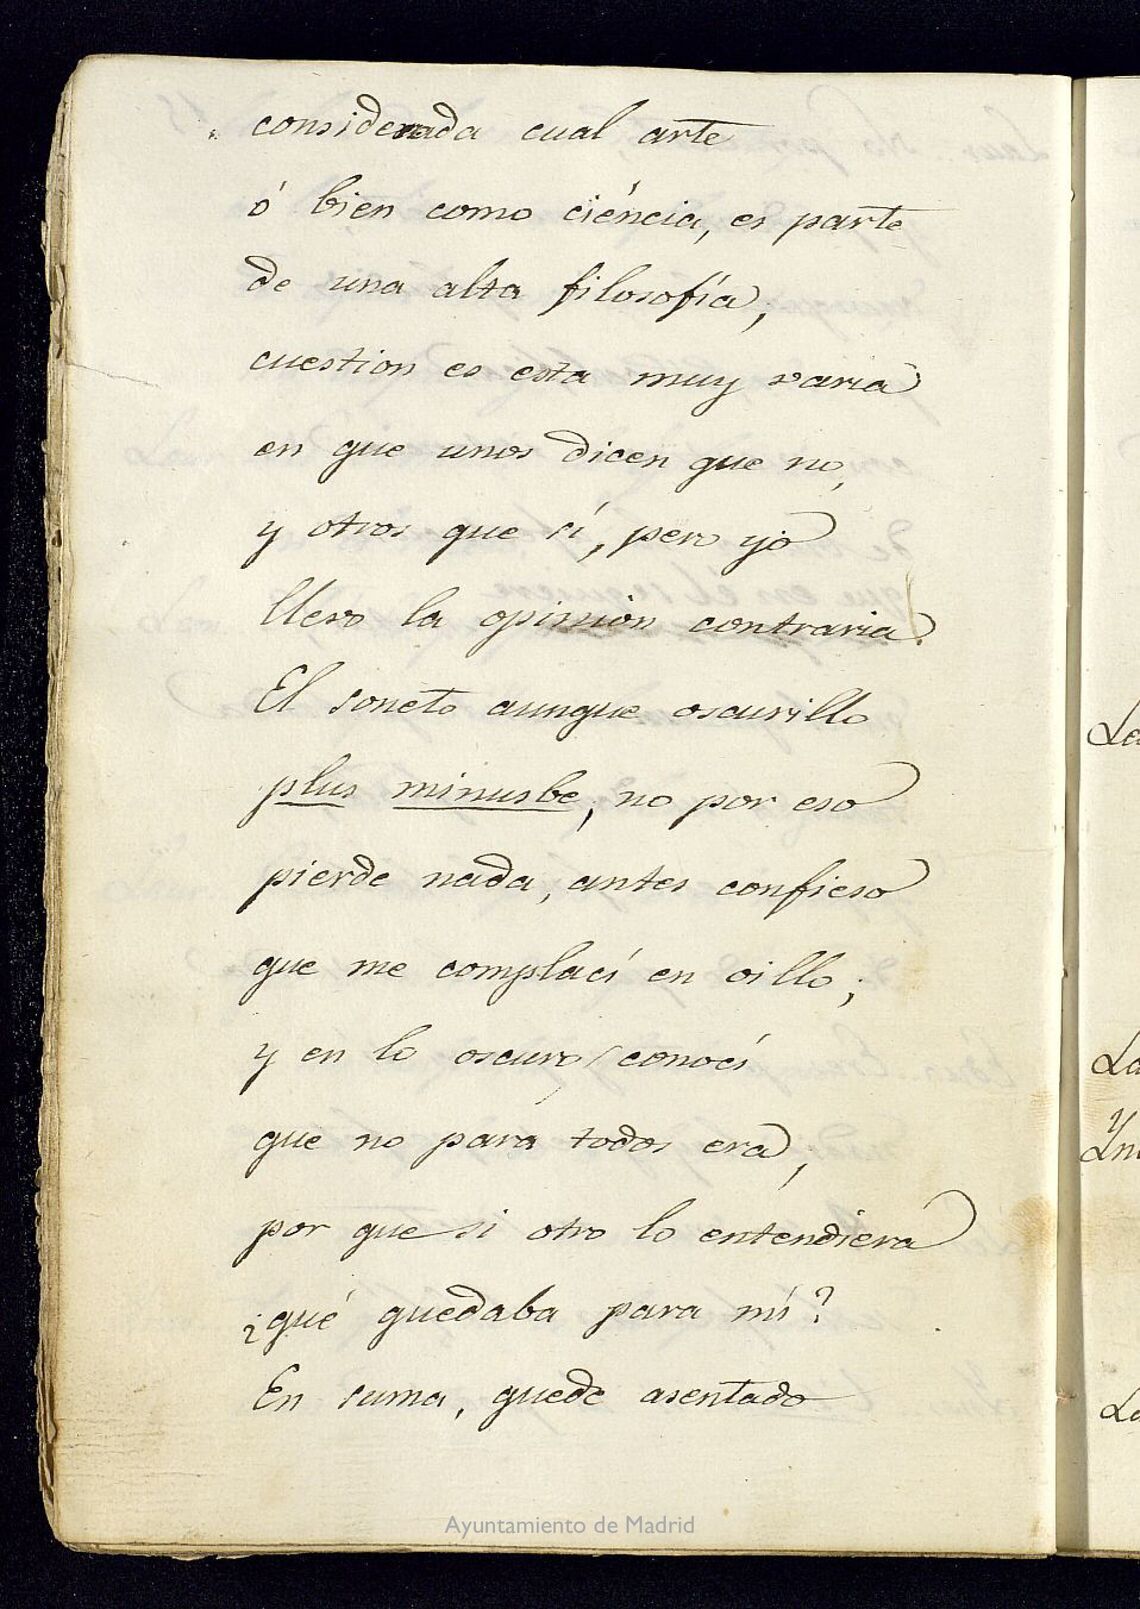 considerada cual arte
ó bien como ciéncia, es parte
de una alta filosofía;
cuestion es esta muy varia
en que unos dicen que no,
y otros que sí, pero yo
llevo la opinion contraria.
El soneto aunque oscurillo
plus minusbe, no por eso
pierde nada, antes confieso
que me complací en oillo;
y en lo oscuro conocí
que no para todos era;
por que si otro lo entendiera
¿qué quedaba para mi?
En suma, quede asentado
Ayuntamiento de Madrid
La
Yn
La